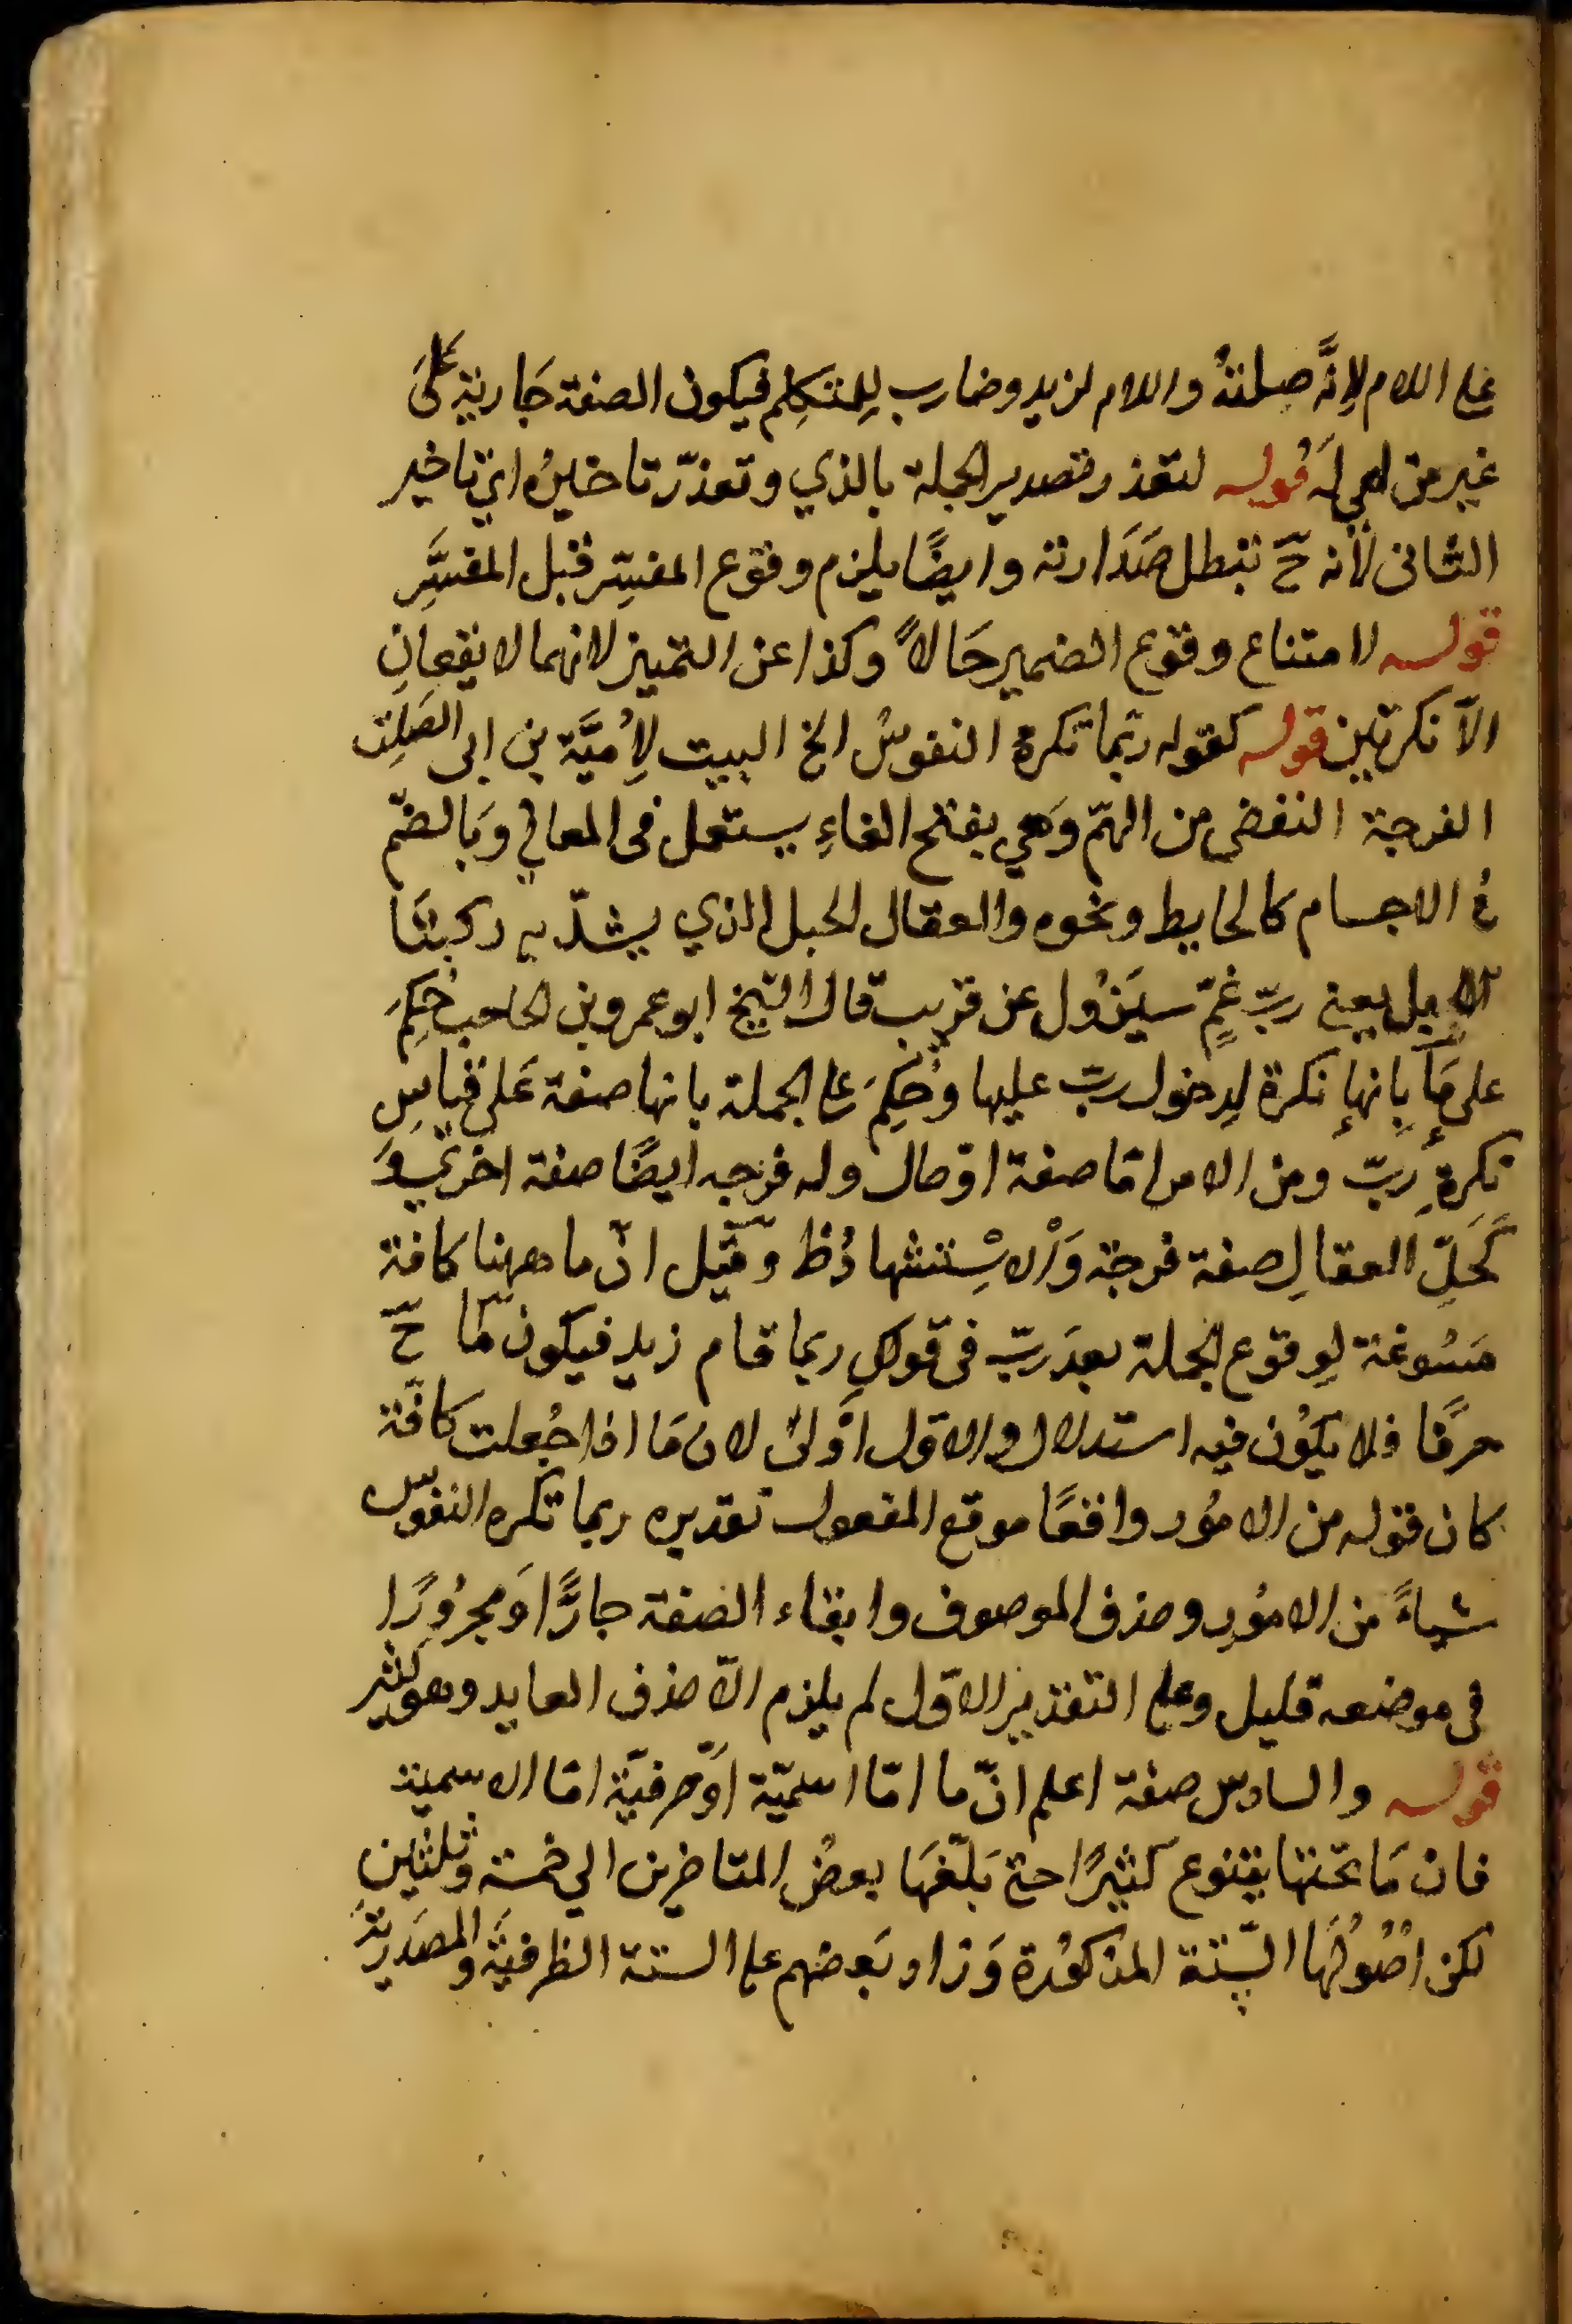 على اللام لِانَّه صلتهُ واللام لزيد وضارب لِلمتكلِم فيكون الصفة جَارية عَلىَ
غير من هي لَه قوله لتعذر تصدير الجملة بالذي وتعذّر تاخيرُه اي تاخير
الثانى لأنه حّ تبطل صَدَارته وايضًا يلزم وقوع المفسِّر قبل المفسَّرِ
قوله لامتناع وقوع الضمير حَالاً وكذا عن التمييز لانهما لا يقعانِ
الاّ نكرتين قوله كقوله ربّما تكرهُ النفوسُ الخ البيت لِأُميَّة بن ابى الصَلِت
الفرجة التفضى من الهمّ وَهي بفتح الفاءِ يستعمل فى المعاني وَبالضمّ
في الاجسام كالحايط ونحوه والعقال الحبل الذي يشدّ به ركبتَا
الابل يعني ربّ غمٍّ سيَزُول عن قريب قال الشيخ ابو عمرو بن الحاجب حُكِمَ
على مَا بِانها نكرة لِدخول ربّ عليها وحُكِمَ على الجملة بانها صفة عَلى قياسِ
نكرةِ ربّ ومن الامر امّا صفة او حال وله فرجه ايضًا صفة اخرَى وَ
كَحَلِّ العقالِ صفة فرجة وَالاِسْتشهادُ ظ وقيّل انّ ما ههنا كافة
مَسُوغة لِوقوع الجملة بعدَ ربّ فى قولك ربما قام زيد فيكون مَا حّ
حرفًا فلا يكوُن فيه استدلال والاول اَولىٰ لان مَا اذا جُعلت كافّة
كان قوله من الامُور واقعًا موقع المفعول تقديره ربما تكره النفوس
شياءً من الامُورِ وحذف الموصوف وابقاء الصفة جارًّا وَمجرُورًا
فى موضعه قليل وعلى التقدير الاوّل لم يلزم الاّ حذف العايد وهو كثير
قوله والسادس صفة اعلم انّ ما امّا اسميّة اوّ حرفيّة امّا الاسمية
فان مَا تحتها يتنوع كثيرًا حتى بَلّغهَا بعضُ المتاخرين الي خمسة وثلثينِ
لكن اصُولُهَا السِّتّة المذكوُرة وَزاد بَعضهم على الستة الظرفيَّة والمصَدريَّة